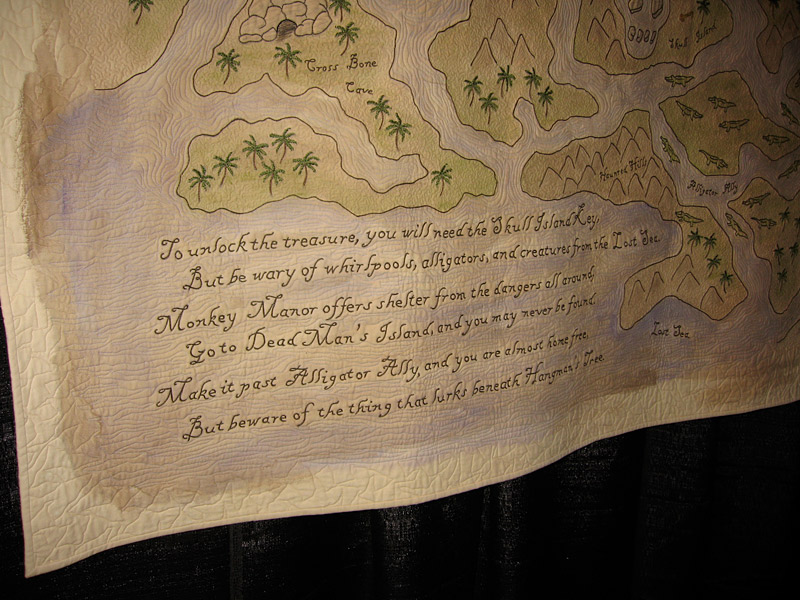 Cross Bone
Cave
Skull Island
Haunted Hills
Alligator Ally
To unlock the treasure, you will need the Skull Island Key,
But be wary of whirlpools, alligators, and creatures from the Lost Sea.
Monkey Manor offers shelter from the dangers all around,
Go to Dead Man's Island, and you may never be found.
Make it past Alligator Ally, and you are almost home free,
But beware of the thing that lurks beneath Hangman's Tree.
Lost Sea